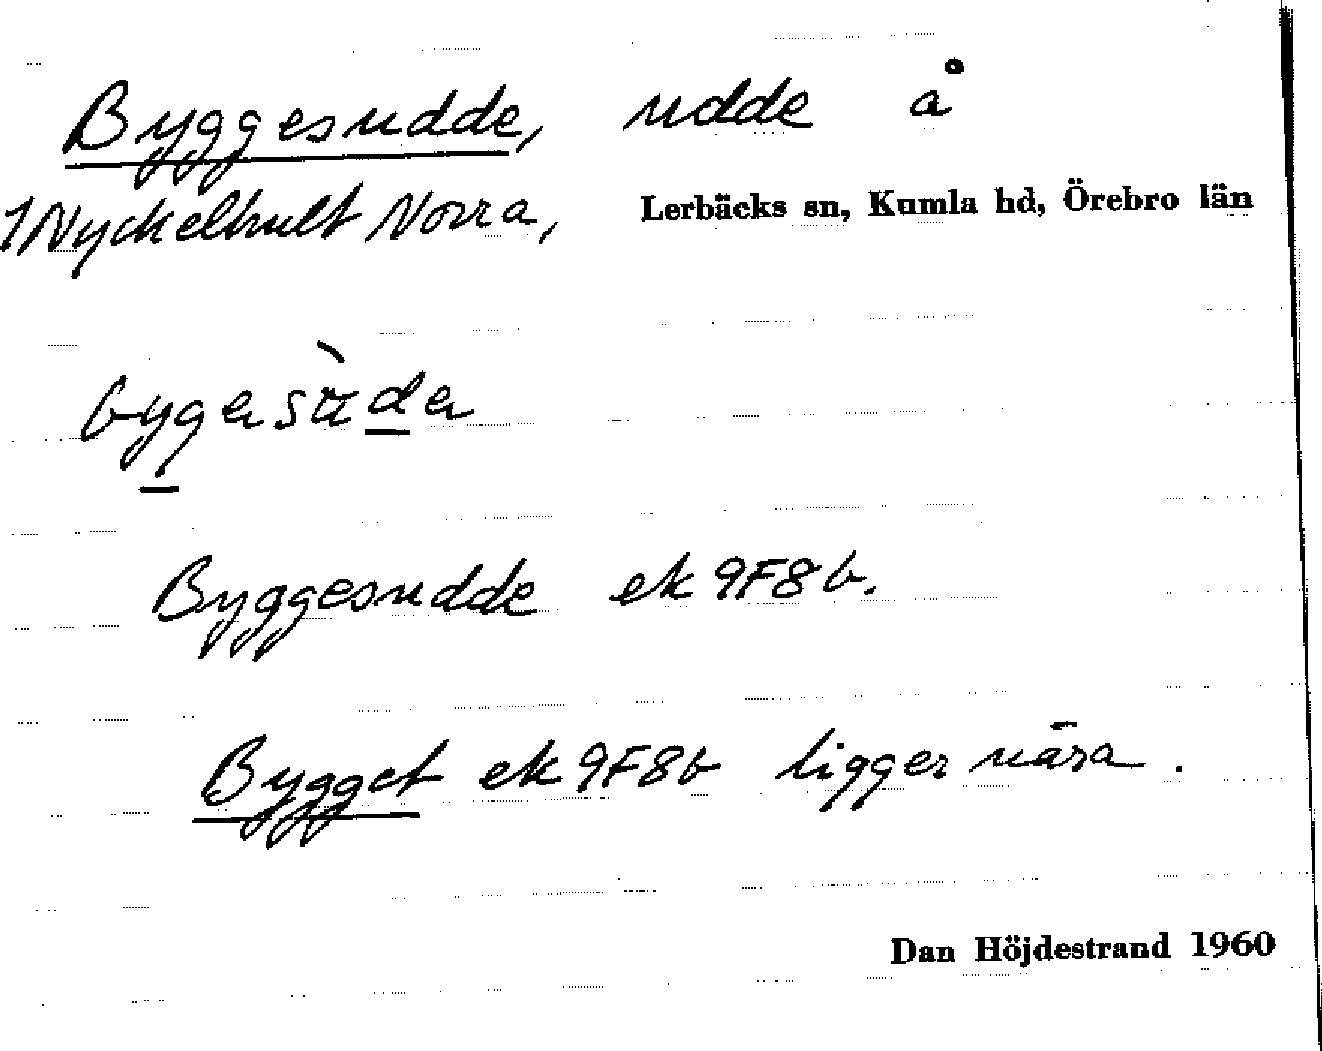 Byggesudde, udde å
1 Nyckelhult Norra, Lerbäcks sn, Kumla hd, Örebro län
Byggesudde ek 9F8b.
Bygget ek 9F8b ligger nära.
Dan Höjdestrand 1960